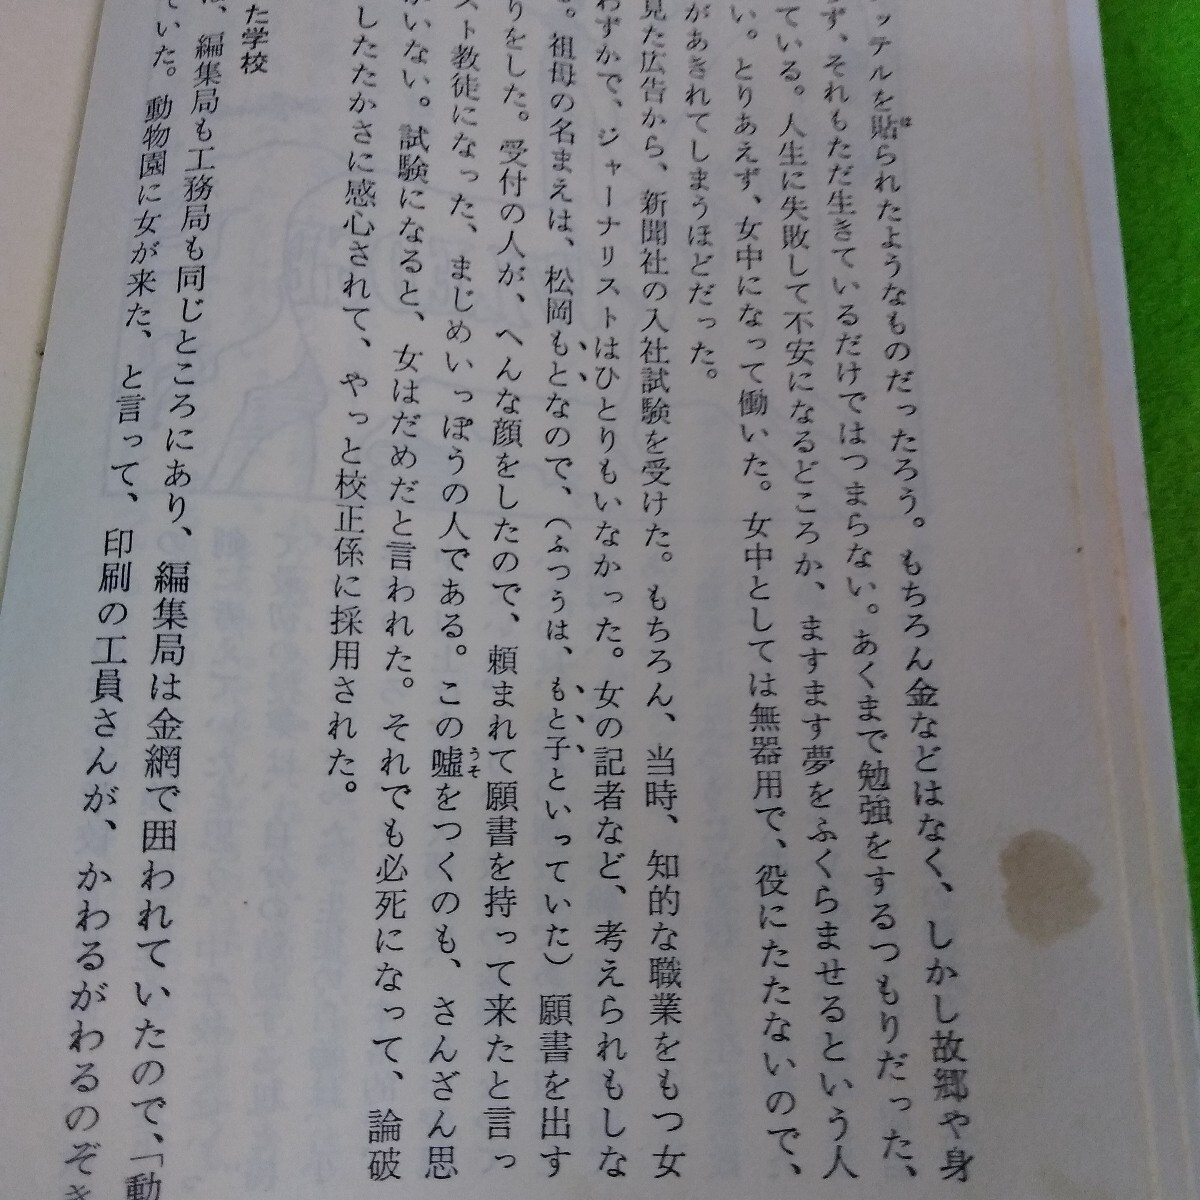 ッテルを貼られたようなものだったろう。もちろん金などはなく、しかし故郷や身
ず、それもただ生きているだけではつまらない。あくまで勉強をするつもりだった、
ている。人生に失敗して不安になるどころか、ますます夢をふくらませるという人
い。とりあえず、女中になって働いた。女中としては無器用で、役にたたないので、
があきれてしまうほどだった。
見た広告から、新聞社の入社試験を受けた。もちろん、当時、知的な職業をもつ女
わずかで、ジャーナリストはひとりもいなかった。女の記者など、考えられもしな
。祖母の名まえは、松岡もとなので、(ふつうは、もと子といっていた)願書を出す
りをした。受付の人が、へんな顔をしたので、頼まれて願書を持って来たと言っ
スト教徒になった、まじめいっぽうの人である。この嘘をつくのも、さんざん思
がいない。試験になると、女はだめだと言われた。それでも必死になって、論破
したたかさに感心されて、やっと校正係に採用された。
た学校
、編集局も工務局も同じところにあり、編集局は金網で囲われていたので、「動
ていた。動物園に女が来た、と言って、印刷の工員さんが、かわるがわるのぞき